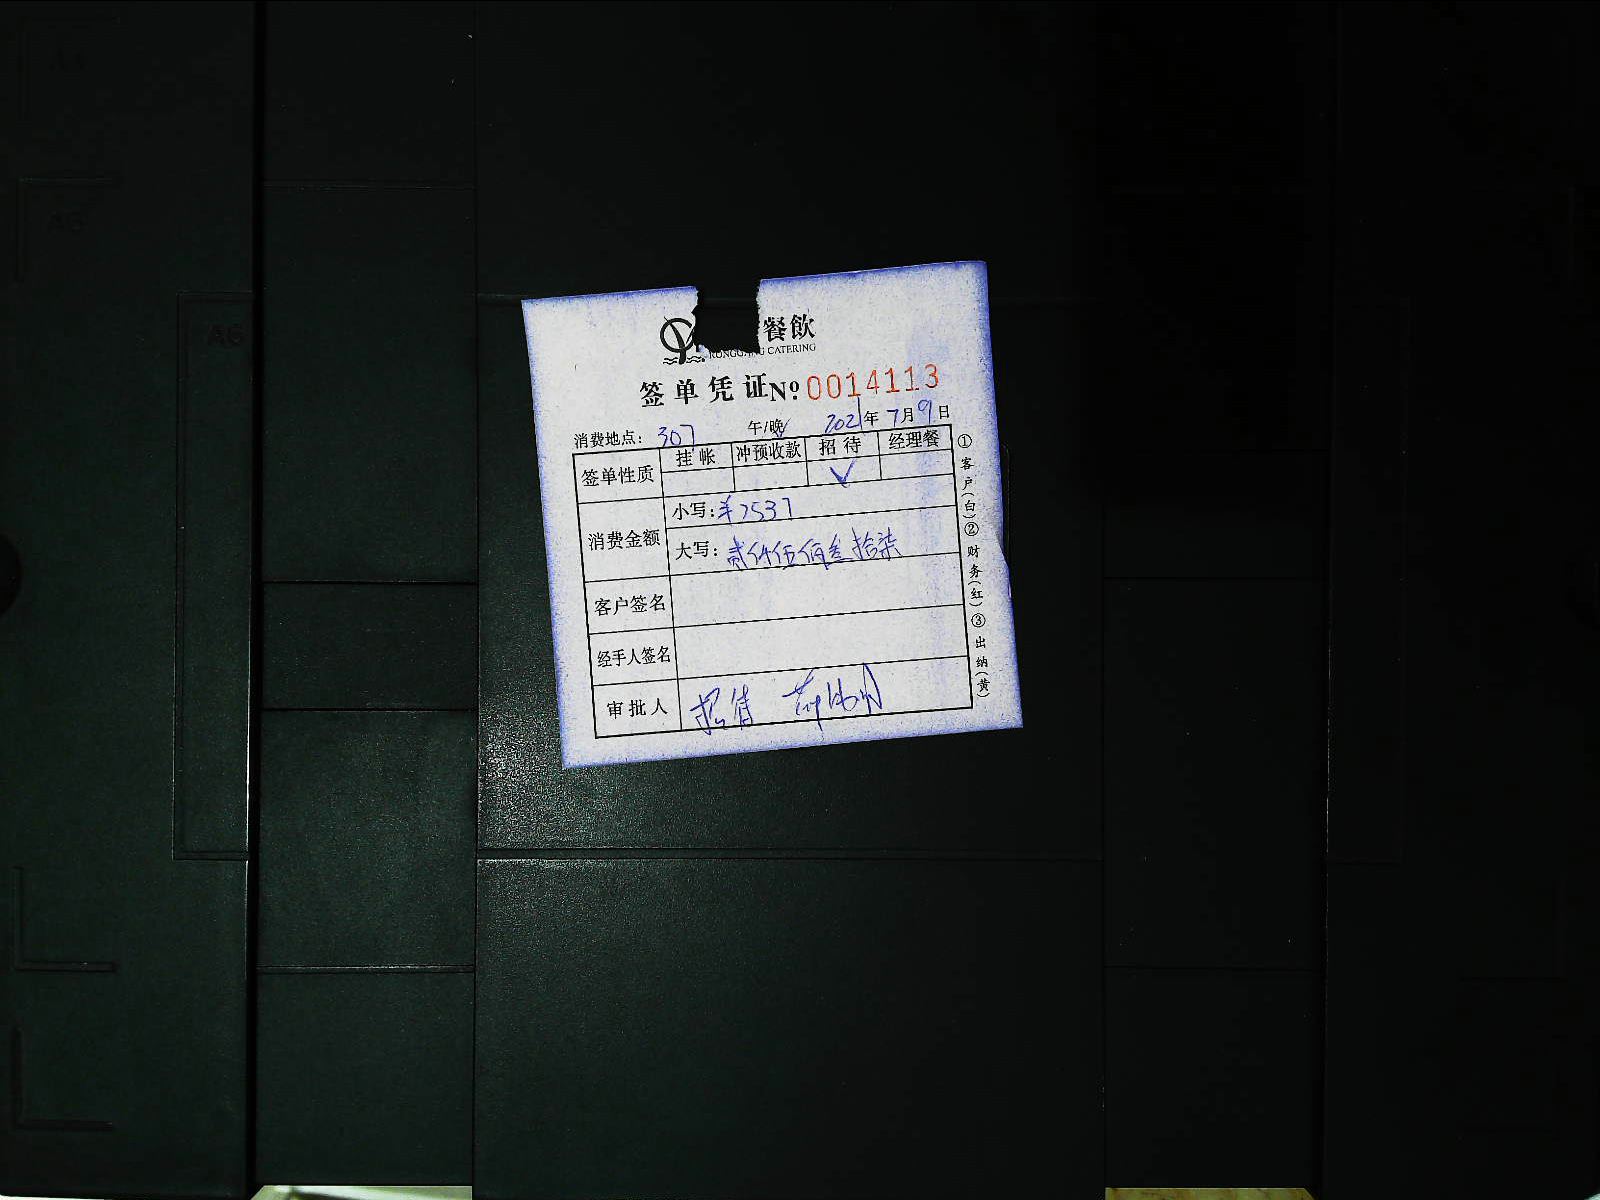 餐飲
CATERING
签单凭证 № 0014113
消费地点: 307 午/晚 2021年7月9日
签单性质 挂帐 冲预收款 招待 经理餐
✓
消费金额 小写: ¥2537
大写: 贰仟伍佰叁拾柒
客户签名
经手人签名
审批人 招待
①客户(白)②财务(红)③出纳(黄)
A4
A5
A6